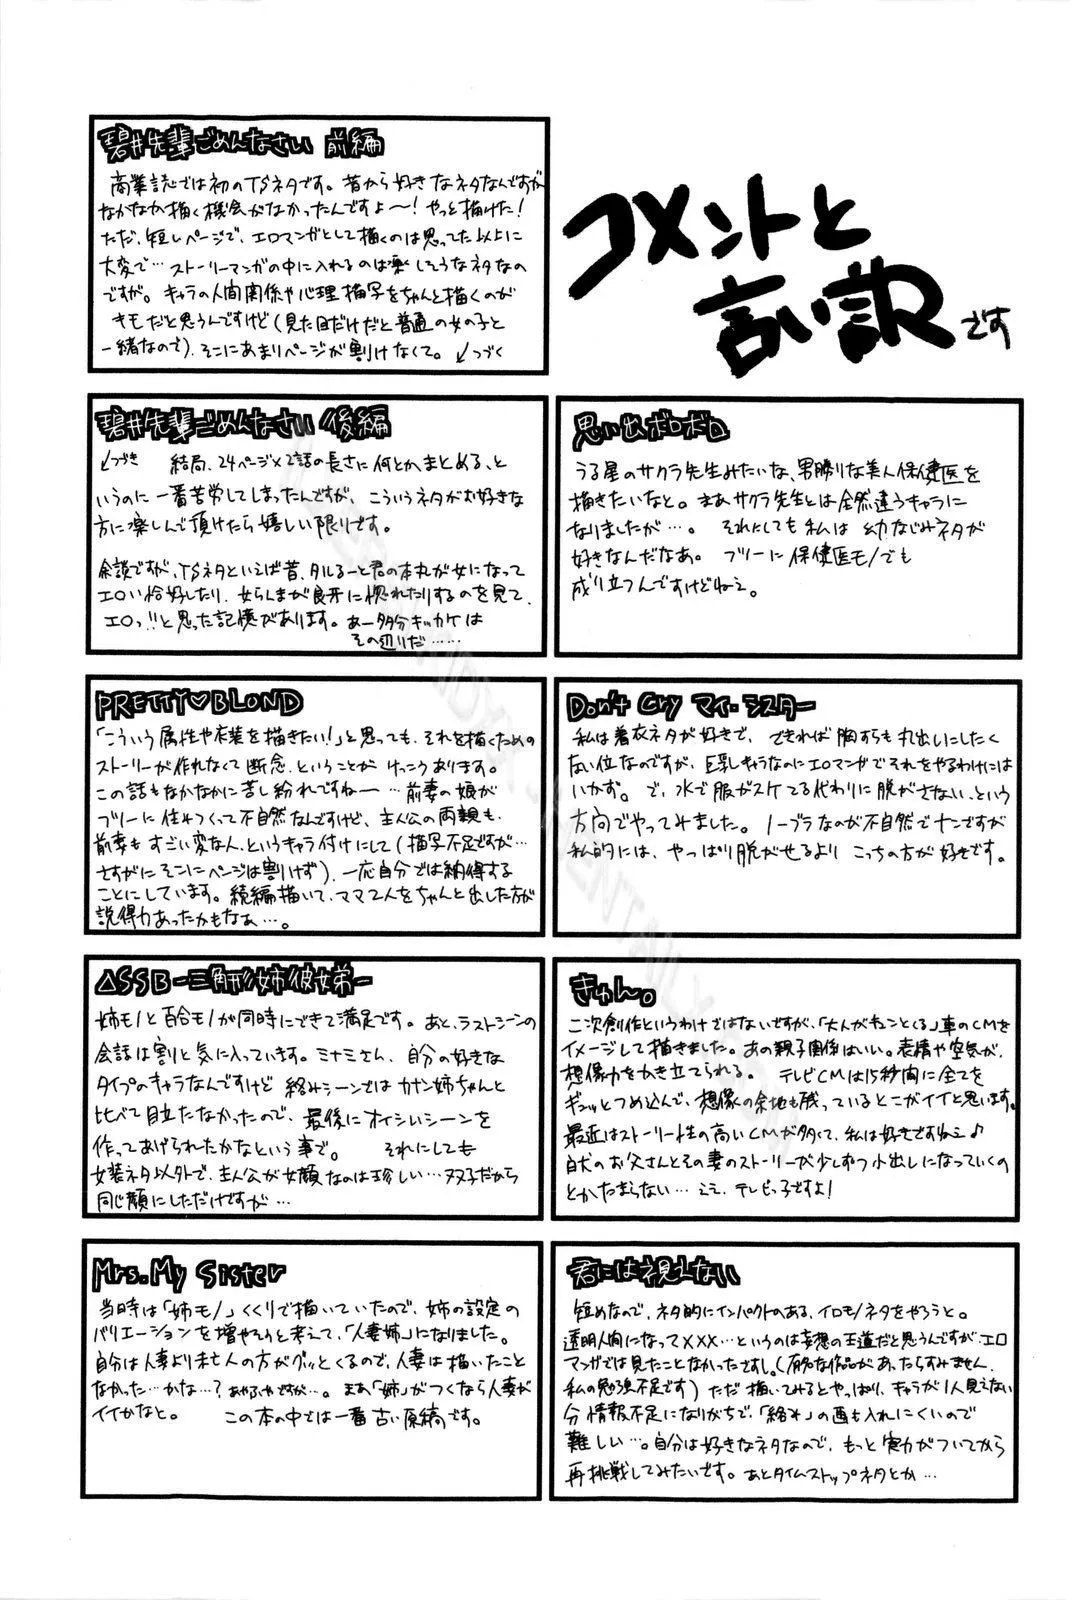 コメントと
言い訳です
碧井先輩ごめんなさい 前編
商業誌では初のTSネタです。昔から好きなネタなんですが
なかなか描く機会がなかったんですよ〜!やっと描けた!
ただ、短いページで、エロマンガとして描くのは思ってた以上に
大変で…ストーリーマンガの中に入れるのは楽しそうなネタなの
ですが。キャラの人間関係や心理描写をちゃんと描くのが
キモだと思うんですけど(見た目だけだと普通の女の子と
一緒なので)、そこにあまりページが割けなくて。↙つづく
碧井先輩ごめんなさい 後編
↙つづき 結局、24ページ×2話の長さに何とかまとめる、と
いうのに一番苦労してしまったんですが、こういうネタがお好きな
方に楽しんで頂けたら嬉しい限りです。
余談ですが、TSネタといえば昔、タルるート君の本丸が女になって
エロい恰好したり、女らんまが良牙に惚れたりするのを見て、
エロッ!!と思った記憶があります。あー多分キッカケは
その辺りだ……
思い出ボロボロ
うる星のサクラ先生みたいな、男勝りな美人保健医を
描きたいなと。まあサクラ先生とは全然違うキャラに
なりましたが…。それにしても私は幼なじみネタが
好きなんだなあ。フツーに保健医モノでも
成り立つんですけどねえ。
PRETTY♡BLOND
「こういう属性や衣装を描きたい!」と思っても、それを描くための
ストーリーが作れなくて断念、ということがけっこうあります。
この話もなかなかに苦し紛れですねー…前妻の娘が
フツーに住みつくって不自然なんですけど、主人公の両親も、
前妻もすごい変な人、というキャラ付けにして(描写不足ですが…
さすがにそこにページは割けず)、一応自分では納得する
ことにしています。続編描いて、ママ2人をちゃんと出した方が
説得力あったかもなぁ…。
Don't Cry マイ・シスター
私は着衣ネタが好きで、できれば胸すらも丸出しにしたく
ない位なのですが、巨乳キャラなのにエロマンガでそれをやるわけには
いかず。で、水で服がスケてる代わりに脱がさない、という
方向でやってみました。ノーブラなのが不自然でナンですが
私的には、やっぱり脱がせるよりこっちの方が好きです。
△SSB-三角形姉彼弟-
姉モノと百合モノが同時にできて満足です。あと、ラストシーンの
会話は割と気に入っています。ミナミさん、自分の好きな
タイプのキャラなんですけど絡みシーンではカナン姉ちゃんと
比べて目立たなかったので、最後にオイシいシーンを
作ってあげられたかなという事で。それにしても
女装ネタ以外で、主人公が女顔なのは珍しい…双子だから
同じ顔にしただけですが…
きゅん。
二次創作というわけではないですが、「大人がキュンとくる」車のCMを
イメージして描きました。あの親子関係はいい。表情や空気が、
想像力をかき立てられる。テレビCMは15秒間に全てを
ギュッとつめ込んで、想像の余地も残っているとこがイイと思います。
最近はストーリー性の高いCMが多くて、私は好きですねえ♪
白犬のお父さんとその妻のストーリーが少しずつ小出しになっていくの
とかたまらない…ええ、テレビっ子ですよ!
Mrs.My Sister
当時は「姉モノ」くくりで描いていたので、姉の設定の
バリエーションを増やそうと考えて、「人妻姉」になりました。
自分は人妻より未亡人の方がグッとくるので、人妻は描いたこと
なかった…かな…?あやふやですが…。まあ「姉」がつくなら人妻が
イイかなと。この本の中では一番古い原稿です。
君には視えない
短めなので、ネタ的にインパクトのある、イロモノネタをやろうと。
透明人間になって×××…というのは妄想の王道だと思うんですが、エロ
マンガでは見たことなかったですし。(有名な作品があったらすみません、
私の勉強不足です)ただ描いてみるとやっぱり、キャラが1人見えない
分情報不足になりがちで、「絡み」の画も入れにくいので
難しい…。自分は好きなネタなので、もっと実力がついてから
再挑戦してみたいです。あとタイムストップネタとか…